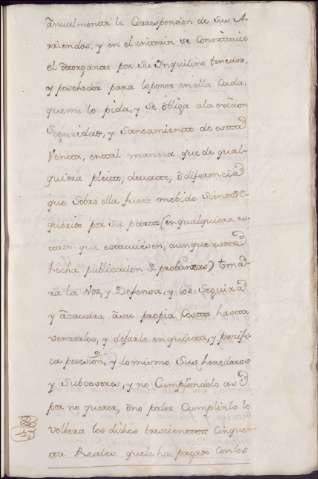 anualmente le Corresponden de sus A-
rriendos, y en el interin se Constituie
el Otorgante por su Inquilino tenedor,
y poseedor para lo poner en ella Cada,
que me lo pida, y se obliga a la eviccion
Seguridad, y Saneamiento de esta
Venta, en tal manera que de qual-
quiera pleito, devate, o diferencia
que sobre ella fuere movido siendo Re-
querido por su parte (en qualquiera es-
tado que estuviesen, aunque este
hecha publicacion de probanzas) toma-
ra la Voz, y Defensa, y los Seguirá
y acavara a su propia Costa hasta
vencerlos, y dejarle en quieta, y pacifi-
ca posesion, y lo mismo sus herederos
y subcesores, y no Cumpliendolo asi
por no querer, o no poder Cumplirlo le
volbera los dichos trescientos cinquen-
ta Reales que le ha pagado con los